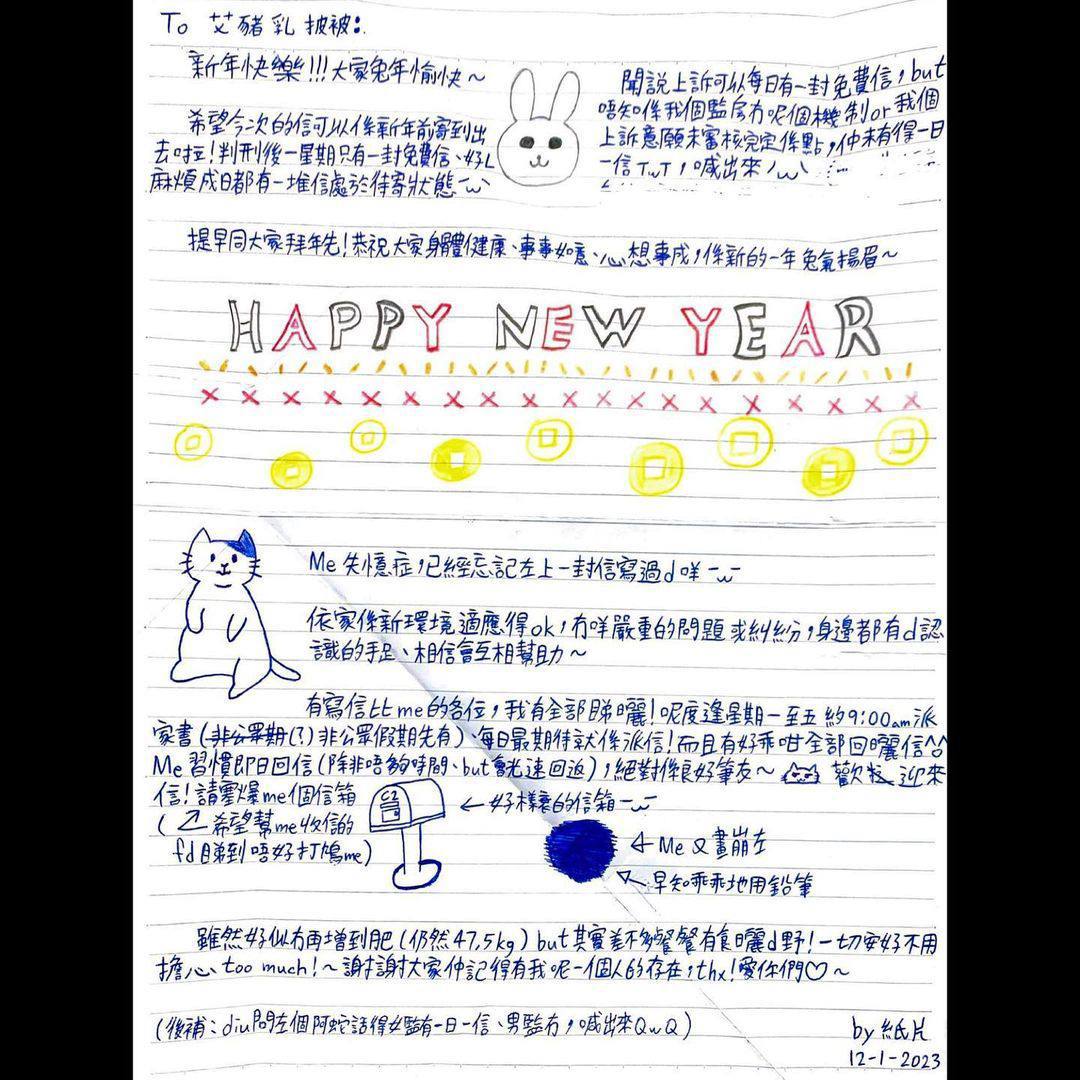 To 艾豬乳披被:.
新年快樂!!!大家兔年愉快~
希望今次的信可以係新年前寄到出
去啦!判刑後一星期只有一封免費信、好L
麻煩成日都有一堆信處於待寄狀態
聞說上訴可以每日有一封免費信,but
唔知係我個監房冇呢個機制or我個
上訴意願未審核完定係點,仲未有得一日
一信TwT,喊出來
提早同大家拜年先!恭祝大家身體健康、事事如意、心想事成,係新的一年兔氣揚眉~
HAPPY NEW YEAR
Me失憶症,已經忘記左上一封信寫過d咩 -w-
依家係新環境適應得ok,冇咩嚴重的問題或糾紛,身邊都有d認
識的手足、相信會互相幫助~
有寫信比me的各位,我有全部睇曬!呢度逢星期一至五約9:00am派
家書(非公眾期(?)非公眾假期先有)每日最期待就係派信!而且有好乖咁全部回曬信^^
Me習慣即日回信(除非唔夠時間、but會光速回返),絕對係良好筆友~ 歡 迎來
信!請墨爆me個信箱
(↗希望幫me收信的
fd睇到唔好打鳩me)
C2
←好樣衰的信箱 -w-
←Me又畫崩左
早知乖乖地用鉛筆
雖然好似冇再增到肥(仍然47.5kg)but其實差不多餐餐有食曬d野!一切安好不用
擔心too much!~謝謝大家仲記得有我呢一個人的存在,thx!愛你們♡~
(後補:diu問左個阿蛇話得女監有一日一信、男監冇,喊出來QwQ)
by紙片
12-1-2023